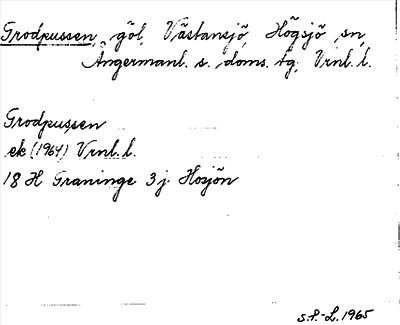 Grodpussen, göl, Västansjö, Högsjö sn,
Ångermanl. s. doms. tg, Vrnl. l.
Grodpussen
ek (1964) Vrnl. l.
18 H Graninge 3 j Hosjön
S.P.-L. 1965